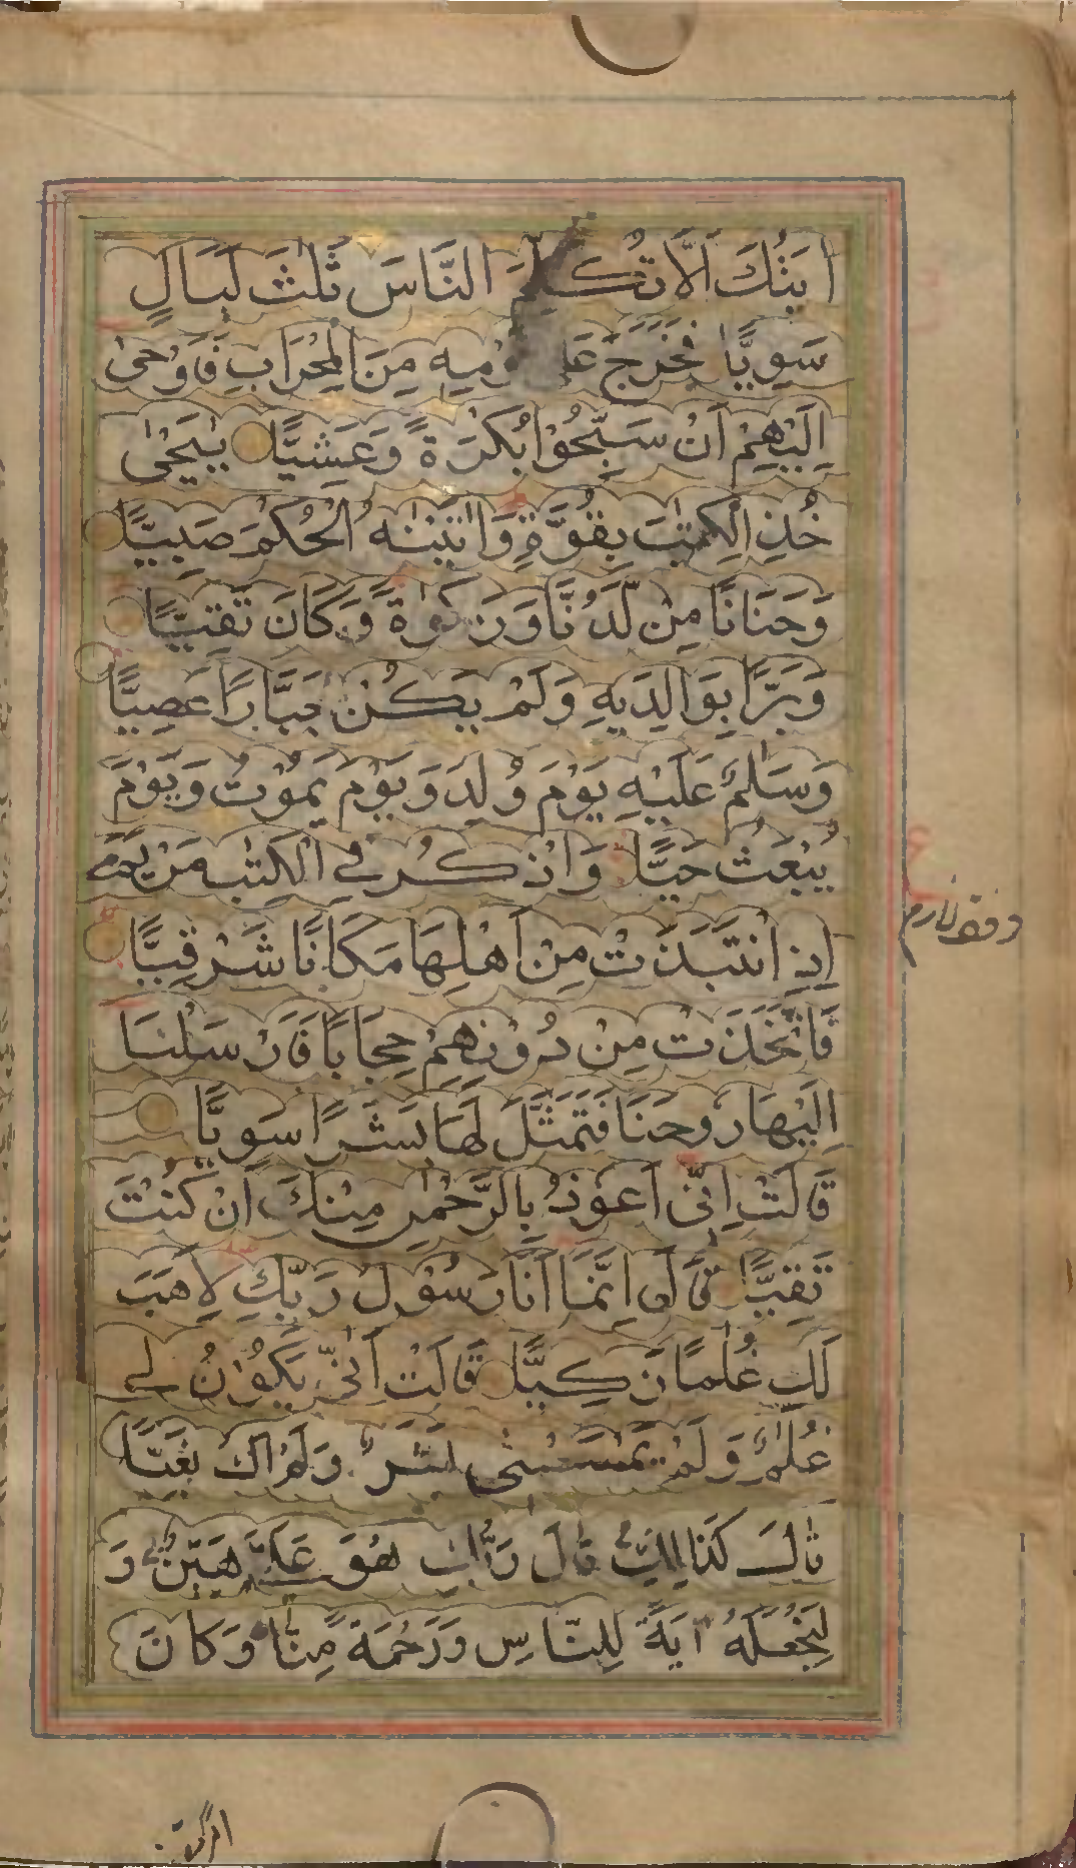 اٰيَتُكَ اَلَّا تُكَلِّمَ النَّاسَ ثَلٰثَ لَيَالٍ
سَوِيًّا فَخَرَجَ عَلٰى قَوْمِهٖ مِنَ الْمِحْرَابِ فَاَوْحٰى
اِلَيْهِمْ اَنْ سَبِّحُوْا بُكْرَةً وَّعَشِيًّا يٰيَحْيٰى
خُذِ الْكِتٰبَ بِقُوَّةٍ وَاٰتَيْنٰهُ الْحُكْمَ صَبِيًّا
وَحَنَانًا مِّنْ لَّدُنَّا وَزَكٰوةً وَّكَانَ تَقِيًّا
وَّبَرًّا بِوَالِدَيْهِ وَلَمْ يَكُنْ جَبَّارًا عَصِيًّا
وَسَلٰمٌ عَلَيْهِ يَوْمَ وُلِدَ وَيَوْمَ يَمُوْتُ وَيَوْمَ
يُبْعَثُ حَيًّا وَاذْكُرْ فِى الْكِتٰبِ مَرْيَمَ
اِذِ انْتَبَذَتْ مِنْ اَهْلِهَا مَكَانًا شَرْقِيًّا
فَاتَّخَذَتْ مِنْ دُوْنِهِمْ حِجَابًا فَاَرْسَلْنَا
اِلَيْهَا رُوْحَنَا فَتَمَثَّلَ لَهَا بَشَرًا سَوِيًّا
قَالَتْ اِنِّىْ اَعُوْذُ بِالرَّحْمٰنِ مِنْكَ اِنْ كُنْتَ
تَقِيًّا قَالَ اِنَّمَا اَنَا رَسُوْلُ رَبِّكِ لِاَهَبَ
لَكِ غُلٰمًا زَكِيًّا قَالَتْ اَنّٰى يَكُوْنُ لِىْ
غُلٰمٌ وَّلَمْ يَمْسَسْنِىْ بَشَرٌ وَّلَمْ اَكُ بَغِيًّا
قَالَ كَذٰلِكِ قَالَ رَبُّكِ هُوَ عَلَىَّ هَيِّنٌ وَ
لِنَجْعَلَهٗ اٰيَةً لِّلنَّاسِ وَرَحْمَةً مِّنَّا وَكَانَ
وقف لازم